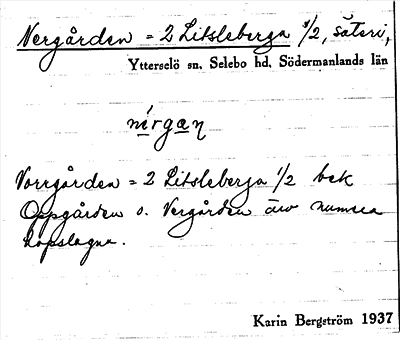 Nergården = 2 Litsleberga 1/2, säteri,
Ytterselö sn. Selebo hd. Södermanlands län
nírgan
Norrgården = 2 Litsleberga 1/2 bek
Oppgården o. Nergården äro numera
hopslagna.
Karin Bergström 1937